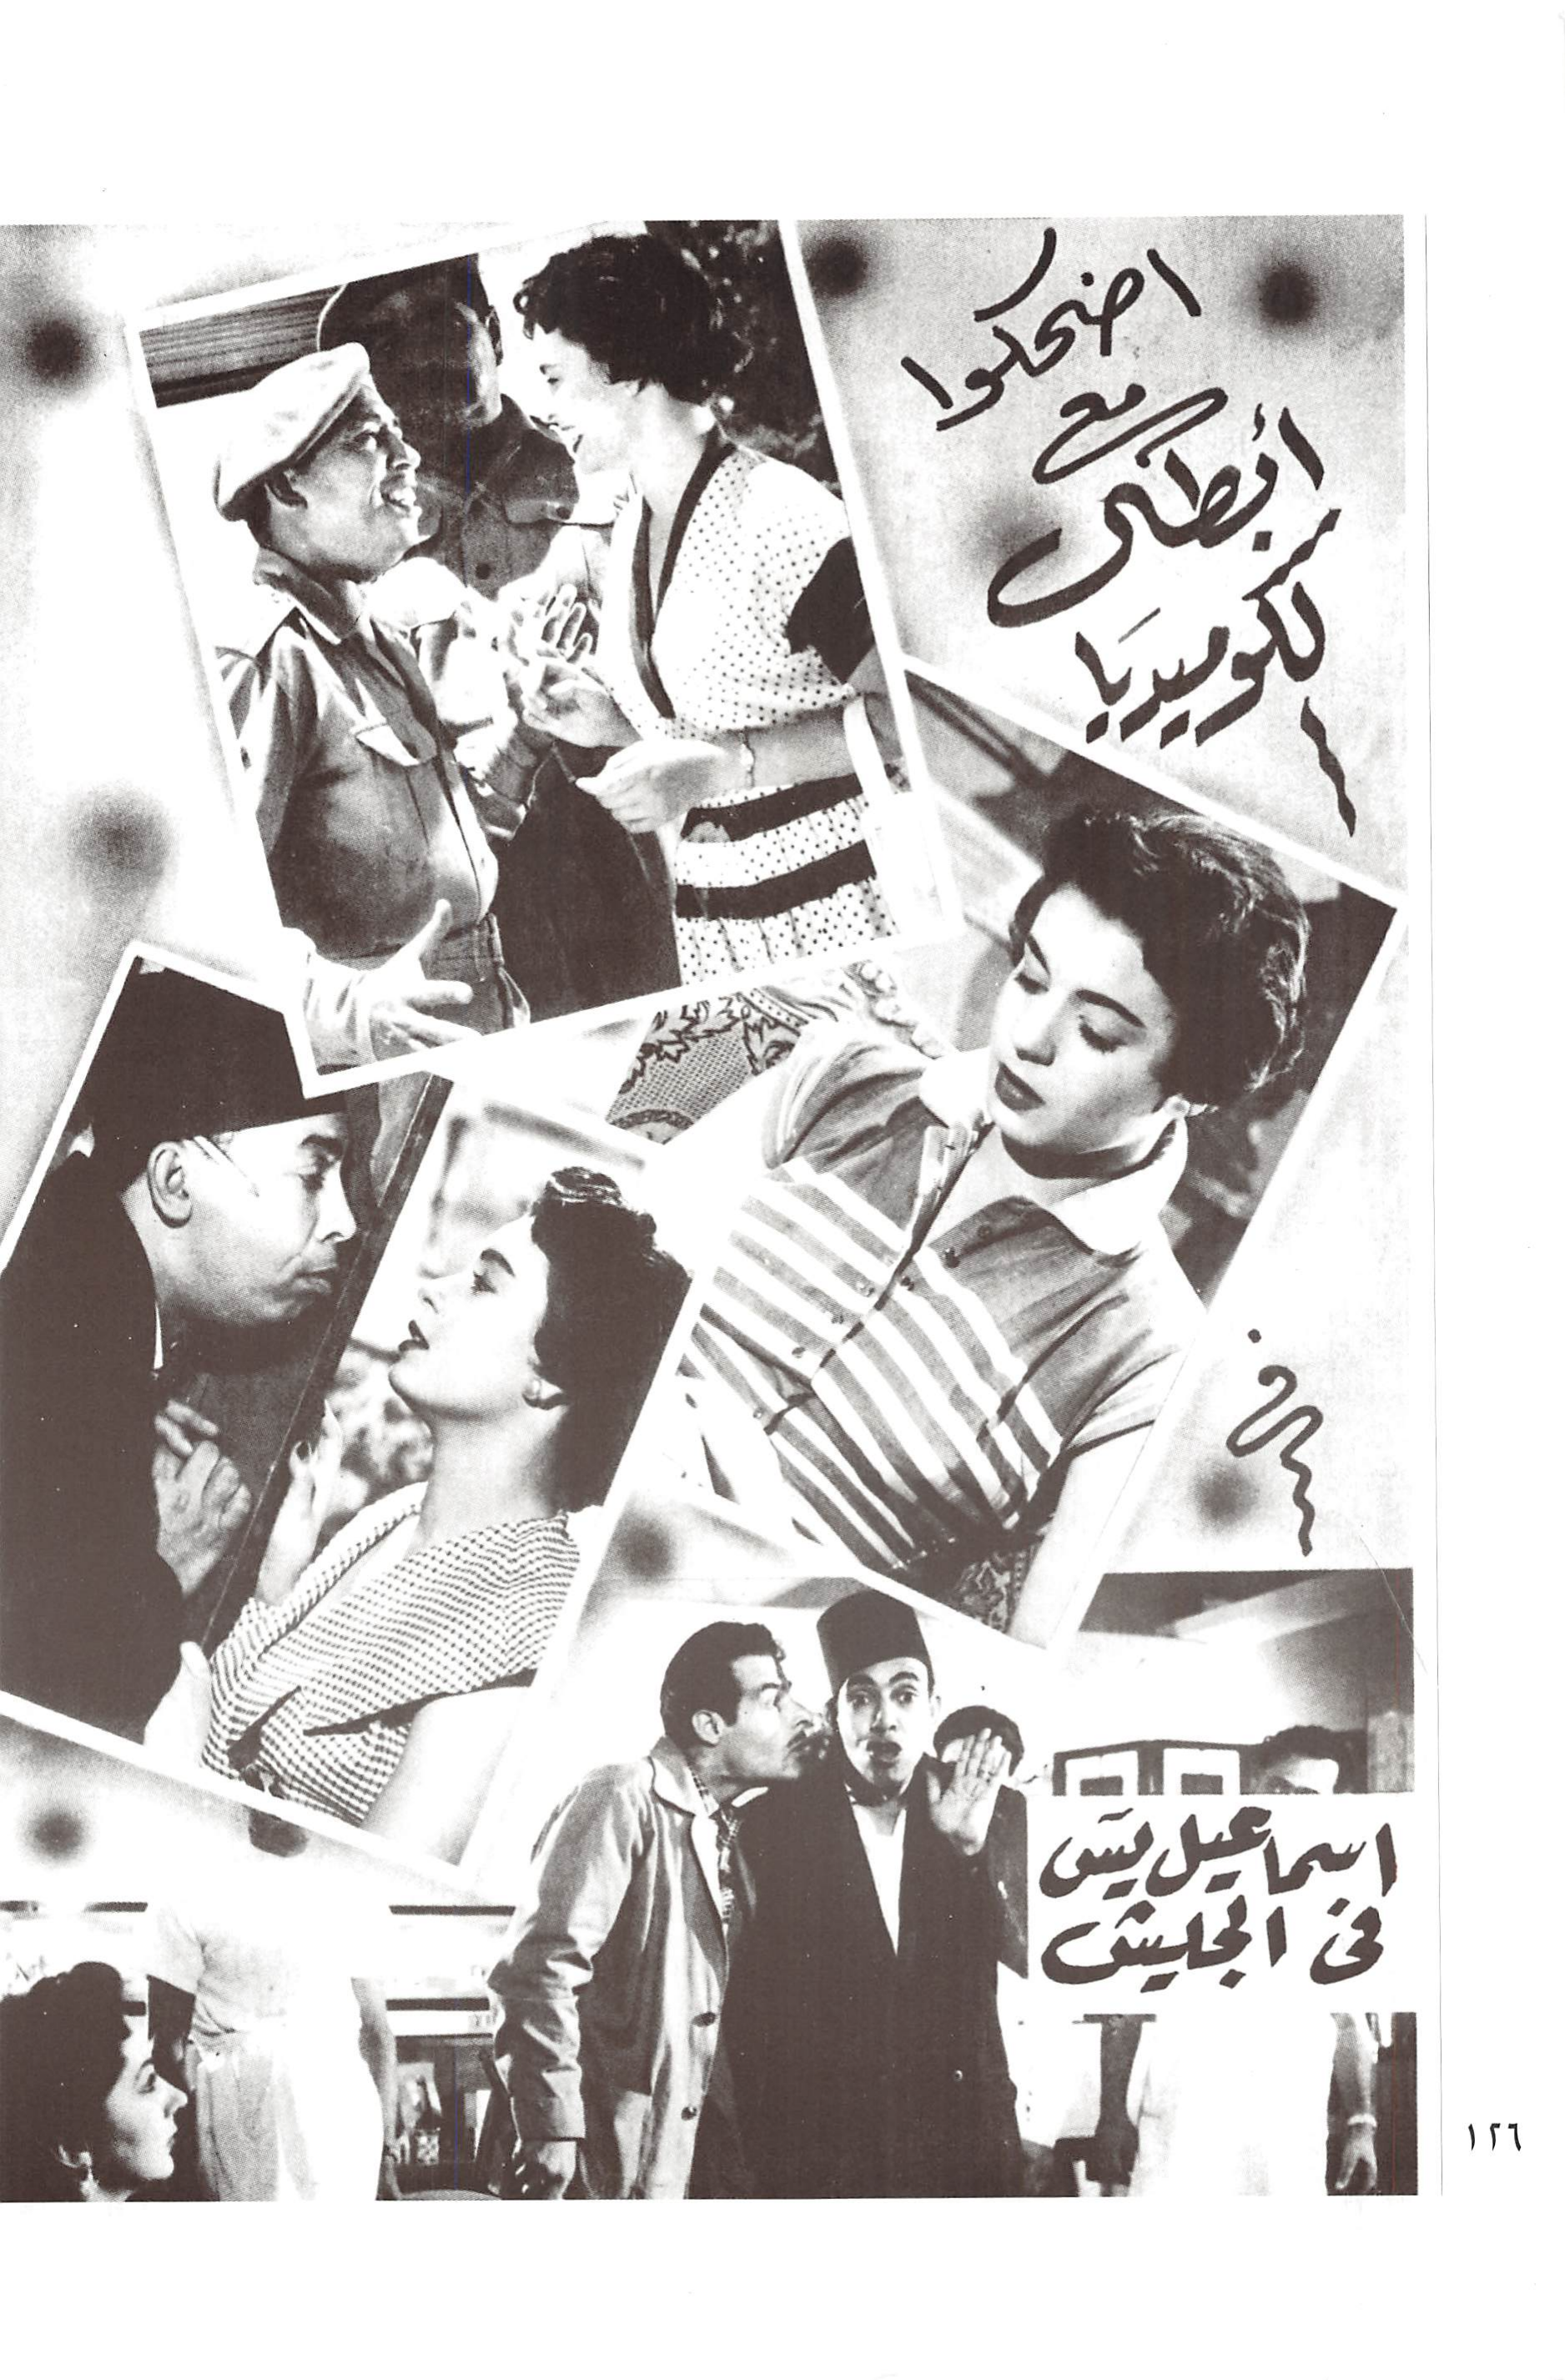 اضحكوا
مع
أبطال
الكوميديا
فى
اسماعيل يس
فى الجيش
١٢٦